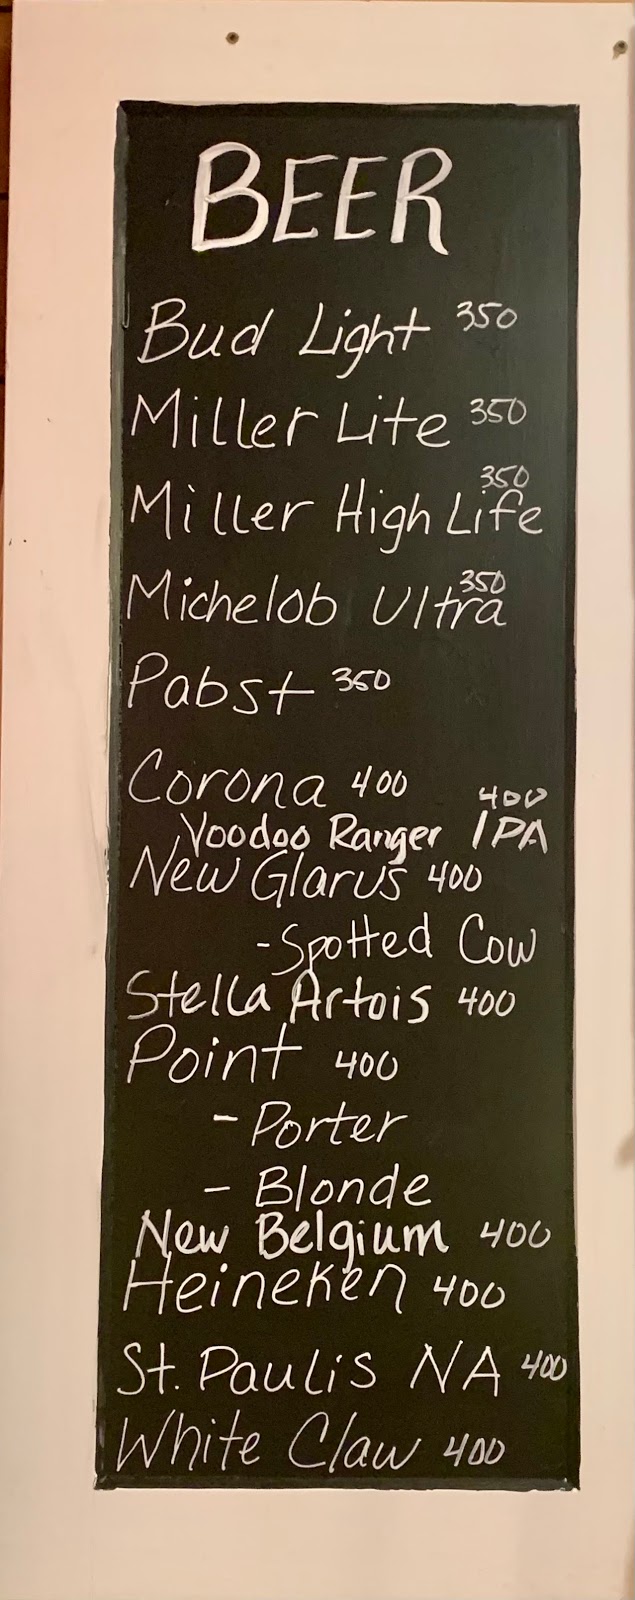 BEER
Bud Light 350
Miller Lite 350
350
Miller High Life
350
Michelob Ultra
Pabst 350
Corona 400
400
Voodoo Ranger IPA
New Glarus 400
-Spotted Cow
Stella Artois 400
Point 400
- Porter
- Blonde
New Belgium 400
Heineken 400
St. Paulis NA 400
White Claw 400